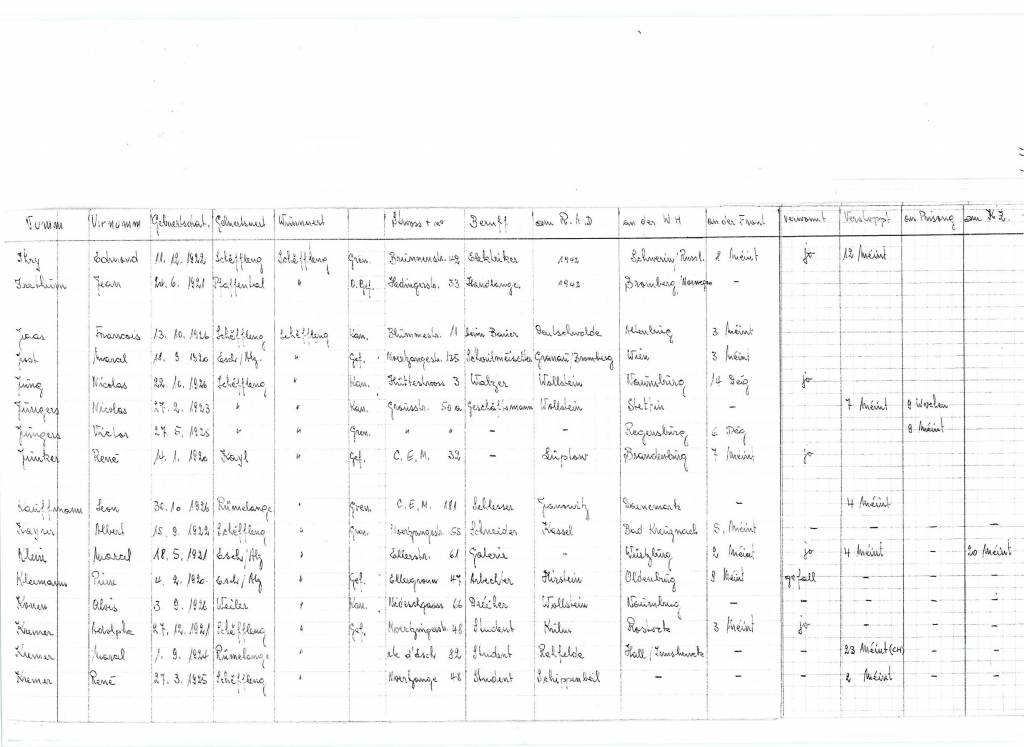 Numm Virnumm Gebuertsdat. Gebuertsuert Wunnuert Strooss + no Beruff am R.A.D an der W H an der Front verwonnt Verstoppt am Prisong am K Z.
Edmond 11. 12. 1922 Schëffleng Schëffleng Gren. Brunnenstr. 49 Elektriker 1942 Schwerin/Russl. 2 Méint jo 12 Méint
Jean 6. 1921 Pfaffenthal " O.Gef. Hedingerstr. 33 Handlanger 1942 Bromberg/Norwegen –
Jaas Francois 13. 10. 1926 Schëffleng Schëffleng Kan. Blummestr. 11 beim Bauer Deutschwalde Altenburg 3 Méint
Jost Marcel 18. 9 1920 Esch/Alz. " Gef. Noertzangestr. 135 Schoulmeeschter Gronau/Bromberg Wien 3 Méint
Jung Nicolas 22. 10. 1926 Schëffleng " Kan. Hüttestrooss 3 Walzer Wollstein Naumburg 14 Deg jo
Jüngers Nicolas 27. 2. 1923 " " Kan. Groussstr. 50a Geschäftsmann Wollstein Stettin – 7 Méint 9 Wochen
Jüngers Victor 27. 5. 1925 " " Gren. " " – – Regensburg 6 Deg 9 Méint
Junker René 14. 1. 1920 Kayl " Gef. C. E. M. 32 – Lüptow Brandenburg 7 Méint jo
Kauffmann Leon 30. 10 1926 Rümelange " Gren. C. E. M. 181 Schlosser Daenemark – 4 Méint
Kayser Albert 15. 9. 1922 Schëffleng " Gren. Noertzangestr. 55 Schneider Kassel Bad Kreuznach 5. Méint – – – –
Klein Marcel 18. 5. 1921 Esch/Alz " Ellerstr. 61 Galerie – Würzburg 2 Méint jo 4 Méint – 20 Méint
Kleimann Pierre 4. 2. 1920. Esch/Alz " Gef. Ellergronn 47 Arbechter Hirstein Oldenburg 9 Méint gefall – – –
Konen Alois 3 9. 1926 Weiler " Kan. 66 Dréiher Wollstein Naumburg – – – – –
Kremer Adolphe 27. 12. 1921 Schëffleng " Gef. 48 Student Rostock 3 Méint jo – – –
Kremer Marcel 1. 9. 1924 Rümelange " rte d'Esch 82 Student Rehfelde Hall/Innsbruck – – 23 Méint (CH) – –
Kremer René 27. 3. 1925 Schëffleng " Noertzange 48 Student Schippenbeil – – – 2 Méint – –